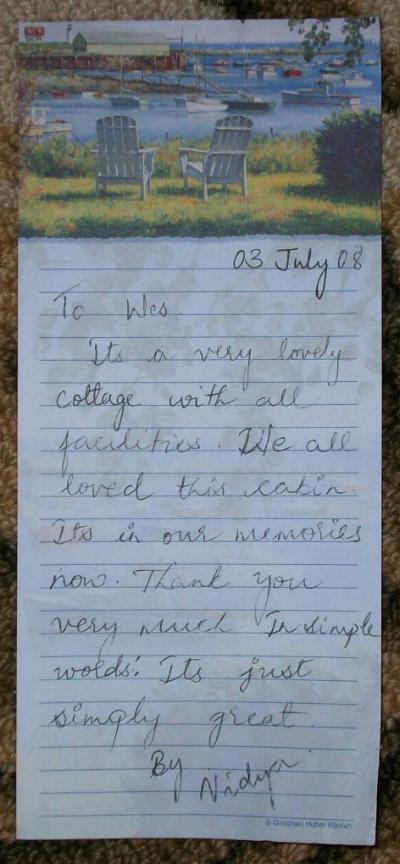 03 July 08
To Wes
Its a very lovely
cottage with all
facilities. We all
loved this cabin.
Its in our memories
now. Thank you
very much. In simple
words: Its just
simply great.
By
Nidya.
© Gretchen Huber Warren